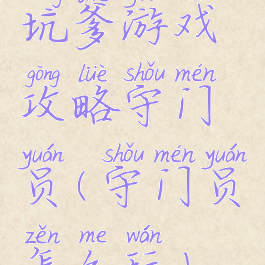 坑爹游戏
gōng lüè shǒu mén
攻略守门
yuán shǒu mén yuán
员(守门员
zěn me wán
怎么玩)